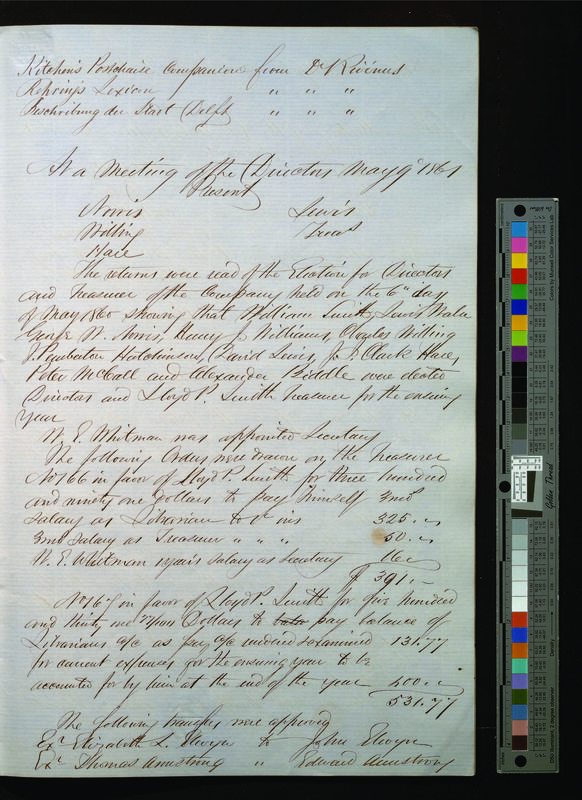 Kitchin's Postchaise Companion from Dr Rivinus
Rehring's Lexicon " " "
Beschribung der Start Delft " " "
At a Meeting of the Directors May 9th 1861
Present
Norris Lewis
Willing Treasr
Hare
The returns were read of the Election for Directors
and Treasurer of the Company held on the 6th day
of May 1860 showing that William Smith, Lewis Waln
George W. Norris, Henry J Williams, Charles Willing
J. Pemberton Hutchinson, David Lewis, J. I. Clark Hare,
Peter McCall and Alexander Biddle were elected
Directors and Lloyd P. Smith Treasurer for the ensuing
year
W. E. Whitman was appointed Secretary
The following Orders were drawn on the Treasurer
No 166 in favor of Lloyd P. Smith for three hundred
and ninety one dollars to pay himself 3 mos
salary as Librarian to 1st ins 325.
3 mos salary as Treasurer " " " 50.
W. E. Whitman 1 years salary as Secretary 16
$ 391.
No 167 in favor of Lloyd P. Smith for five hundred
and thirty one 77/100 Dollars to pay balance of
Librarians a/c as pay a/c audited & examined 131.77
for current expenses for the ensuing year to be
accounted for by him at the end of the year 400
531.77
The following transfers were approved
Exr Elizabeth L. Elwyn to John Elwyn
Exr Thomas Armstrong " Edward Armstrong